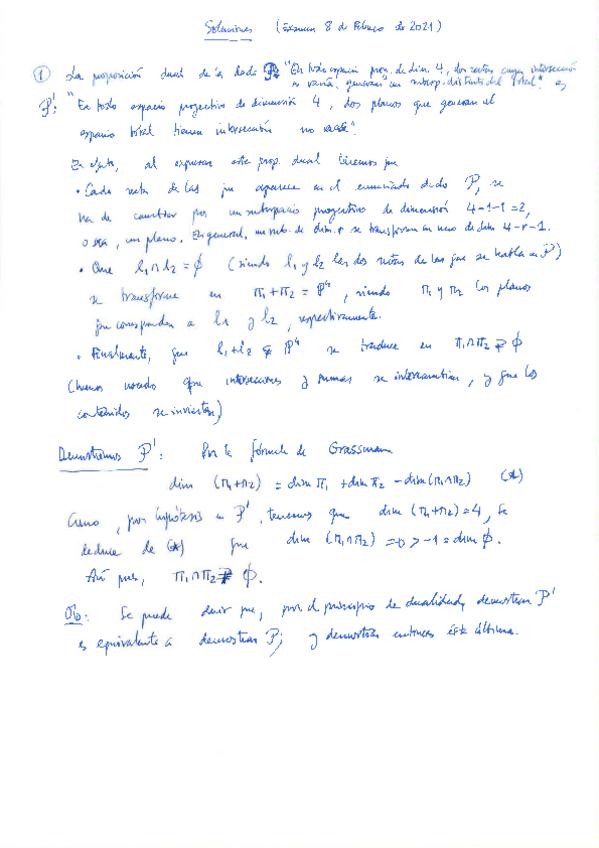 Soluciones (Examen 8 de Febrero de 2021)
① La proposición dual de la dada P: "En todo espacio proy. de dim. 4, dos rectas cuya intersección
es vacía generan un subesp. distinto del total." es
P': "En todo espacio proyectivo de dimensión 4, dos planos que generan el
espacio total tienen intersección no vacía".
En efecto, al expresar esta prop. dual tenemos que
• Cada recta de las que aparece en el enunciado dado P, se
ha de cambiar por un subespacio proyectivo de dimensión 4-1-1=2,
o sea, un plano. En general, un sub. de dim. r se transforma en uno de dim 4-r-1.
• Que l₁∩l₂ = ∅ (siendo l₁ y l₂ las dos rectas de las que se habla en P)
se transforme en π₁+π₂ = P⁴, siendo π₁ y π₂ los planos
que corresponden a l₁ y l₂, respectivamente.
• Finalmente, que l₁+l₂ ⊊ P⁴ se traduce en π₁∩π₂ ⊋ ∅
(hemos usado que intersecciones y sumas se intercambian, y que los
contenidos se invierten)
Demostremos P': Por la fórmula de Grassmann
dim (π₁+π₂) = dim π₁ + dim π₂ - dim(π₁∩π₂) (*)
Como, por hipótesis en P', tenemos que dim (π₁+π₂)=4, se
deduce de (*) que dim (π₁∩π₂) = 0 > -1 = dim ∅.
Así pues, π₁∩π₂ ⊋ ∅.
Ob: Se puede decir que, por el principio de dualidad, demostrar P'
es equivalente a demostrar P; y demostrar entonces ésta última.